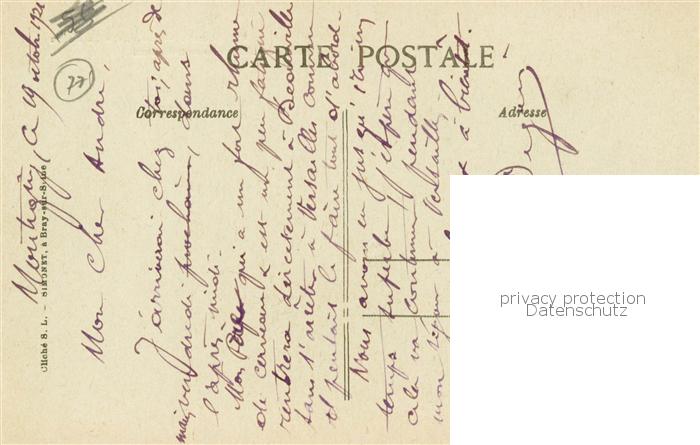 CARTE POSTALE
Correspondance
Adresse
Cliché S. L. - SIMONET, à Bray-sur-Seine
77
55
le 19 octob. 1921
Mon cher André,
J'arriverai chez toi, après de
mais, vendredi prochain, dans
l'après-midi.
Mon Père qui a un fort rhume
de cerveau & est un peu fatigué
rentrera directement à Deauville
sans s'arrêter à Versailles comme
il pensait le faire tout d'abord.
Nous avons eu jusqu'ici un
temps superbe j'espère que
cela va continuer pendant
mon séjour à Versailles
à bientôt.
privacy protection
Datenschutz